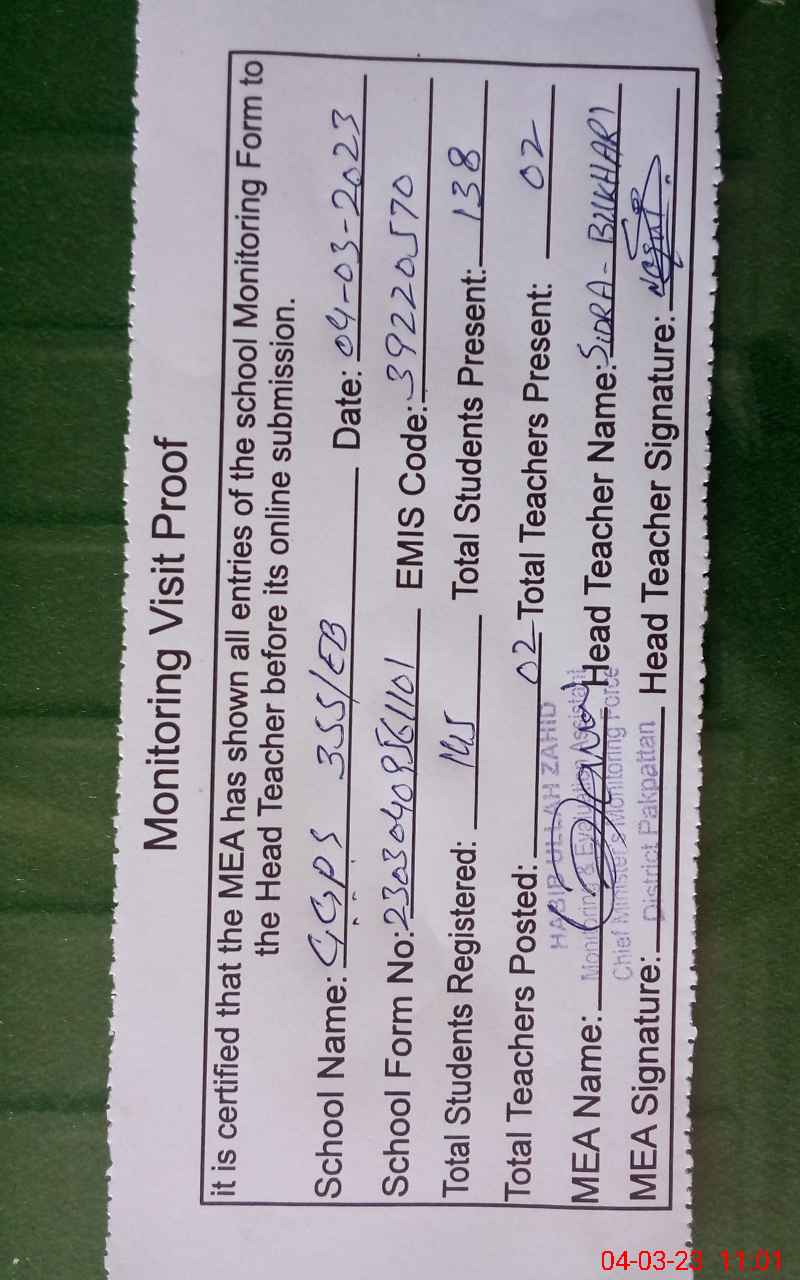 Monitoring Visit Proof
it is certified that the MEA has shown all entries of the school Monitoring Form to
the Head Teacher before its online submission.
School Name: GGPS 355/EB Date: 04-03-2023
School Form No: 23030409561101 EMIS Code: 39220570
Total Students Registered: 145 Total Students Present: 138
Total Teachers Posted: 02 Total Teachers Present: 02
HABIB ULLAH ZAHID
MEA Name: Head Teacher Name: SIDRA - BUKHARI
Monitoring & Evaluation Assistant
Chief Minister's Monitoring Force
MEA Signature: Head Teacher Signature:
District Pakpattan
04-03-23 11:01